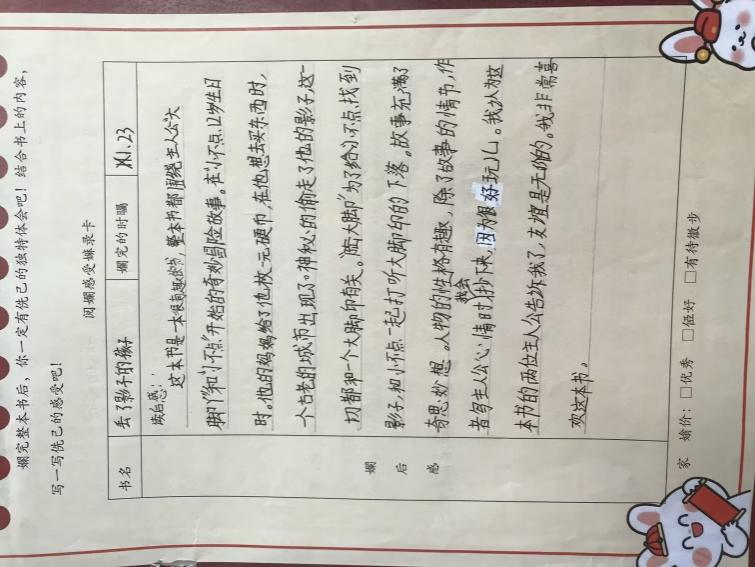 嫻完整本书后，你一定有侊己的独特体会吧！结合书上的内容，
写一写侊己的感受吧！
阅嫻感受嫲录卡
书名
丢了影子的孩子
嫻完的时瞩
XI.23
嫻后感
读后感：
这本书是一本很有趣的书，整本书都围绕主人公"大
脚丫"和"小不点"开始的奇妙冒险故事。在"小不点"12岁生日
时。他的妈妈给了他一枚一元硬币，在他想去买东西时，
一个古老的城市出现了。神秘的偷走了他的影子，这一
切都和一个大脚印有关。"大脚"为了给小不点找到
影子，和小不点一起打听大脚印的下落。故事充满了
奇思妙想。人物的性格有趣，除了故事的情节，作
者写主人公心情时我会抄下来，因为很好玩儿。我认为这
本书的两位主人公告诉我了，友谊是无价的。我非常喜
欢这本书。
家 媮价：□优秀 □侸好 □有待擞步